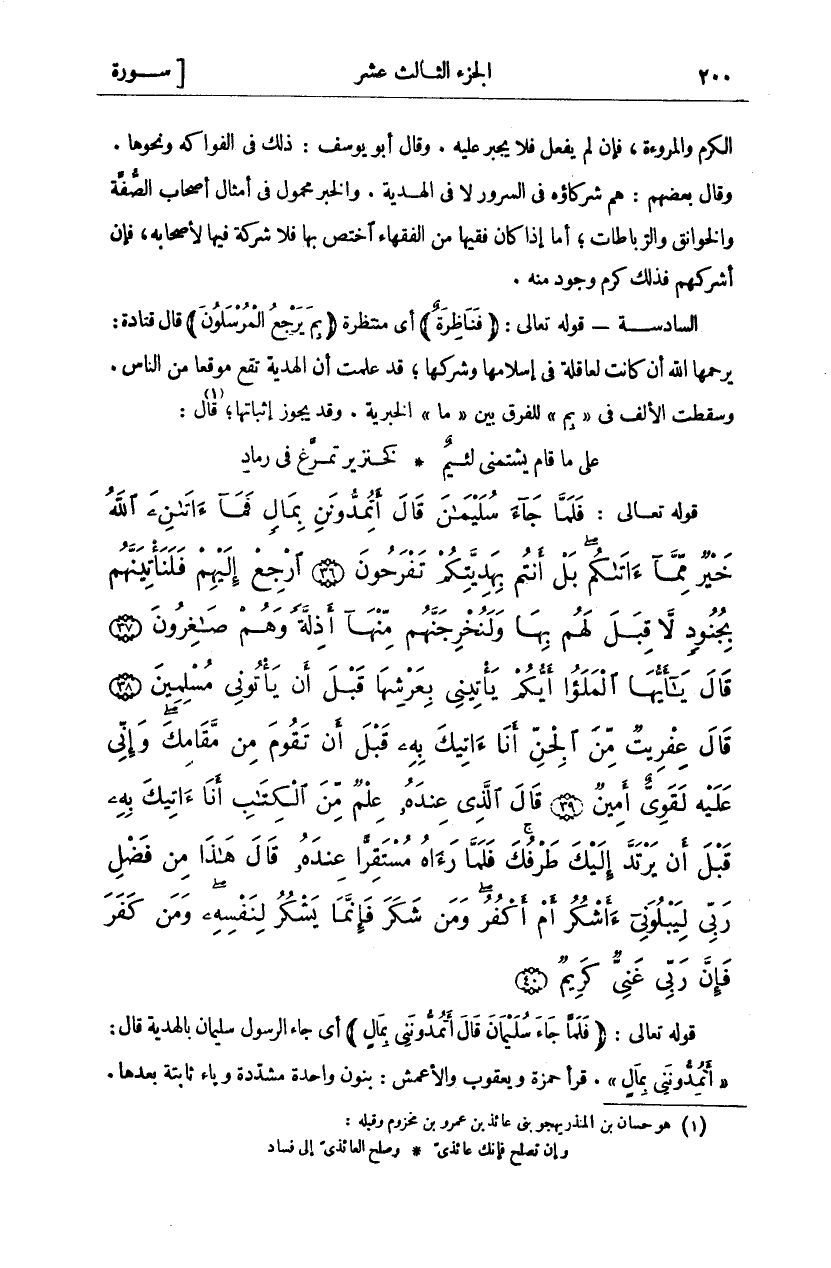 ٢٠٠ الجزء الثالث عشر [ سورة
الكرم والمروءة ، فإن لم يفعل فلا يجبر عليه . وقال أبو يوسف : ذلك فى الفواكه ونحوها .
وقال بعضهم : هم شركاؤه فى السرور لا فى الهدية . والخبر محمول فى أمثال أصحاب الصُّفَّة
والخوانق والرباطات ؛ أما إذا كان فقيها من الفقهاء اختص بها فلا شركة فيها لأصحابه ، فإن
أشركهم فذلك كرم وجود منه .
السادسة – قوله تعالى : ﴿ فَنَاظِرَةٌ ﴾ أى منتظرة ﴿ بِمَ يَرْجِعُ الْمُرْسَلُونَ ﴾ قال قتادة :
يرحمها الله أن كانت لعاقلة فى إسلامها وشركها ؛ قد علمت أن الهدية تقع موقعا من الناس .
وسقطت الألف فى « بِم » للفرق بين « ما » الخبرية . وقد يجوز إثباتها ؛ (١) قال :
على ما قام يشتمنى لئيمٌ * كخنزير تمرَّغ فى رمادِ
قوله تعالى : فَلَمَّا جَآءَ سُلَيْمَٰنَ قَالَ أَتُمِدُّونَنِ بِمَالٍ فَمَآ ءَاتَىٰنِۦَ ٱللَّهُ
خَيْرٌ مِّمَّآ ءَاتَىٰكُمۖ بَلْ أَنتُم بِهَدِيَّتِكُمْ تَفْرَحُونَ ﴿٣٦﴾ ٱرْجِعْ إِلَيْهِمْ فَلَنَأْتِيَنَّهُم
بِجُنُودٍ لَّا قِبَلَ لَهُم بِهَا وَلَنُخْرِجَنَّهُم مِّنْهَآ أَذِلَّةً وَهُمْ صَٰغِرُونَ ﴿٣٧﴾
قَالَ يَٰٓأَيُّهَا ٱلْمَلَؤُا أَيُّكُمْ يَأْتِينِى بِعَرْشِهَا قَبْلَ أَن يَأْتُونِى مُسْلِمِينَ ﴿٣٨﴾
قَالَ عِفْرِيتٌ مِّنَ ٱلْجِنِّ أَنَا ءَاتِيكَ بِهِۦ قَبْلَ أَن تَقُومَ مِن مَّقَامِكَۖ وَإِنِّى
عَلَيْهِ لَقَوِىٌّ أَمِينٌ ﴿٣٩﴾ قَالَ ٱلَّذِى عِندَهُۥ عِلْمٌ مِّنَ ٱلْكِتَٰبِ أَنَا ءَاتِيكَ بِهِۦ
قَبْلَ أَن يَرْتَدَّ إِلَيْكَ طَرْفُكَۚ فَلَمَّا رَءَاهُ مُسْتَقِرًّا عِندَهُۥ قَالَ هَٰذَا مِن فَضْلِ
رَبِّى لِيَبْلُوَنِىٓ ءَأَشْكُرُ أَمْ أَكْفُرُۖ وَمَن شَكَرَ فَإِنَّمَا يَشْكُرُ لِنَفْسِهِۦۖ وَمَن كَفَرَ
فَإِنَّ رَبِّى غَنِىٌّ كَرِيمٌ ﴿٤٠﴾
قوله تعالى : ﴿ فَلَمَّا جَاءَ سُلَيْمَانَ قَالَ أَتُمِدُّونَنِى بِمَالٍ ﴾ أى جاء الرسول سليمان بالهدية قال :
« أَتُمِدُّونَنِى بِمَالٍ » . قرأ حمزة ويعقوب والأعمش : بنون واحدة مشدّدة وياء ثابتة بعدها .
(١) هو حسان بن المنذر يهجو بنى عائذ بن عمرو بن مخزوم وقبله :
وإن تصلح فإنك عائذىّ * وصلح العائذىّ إلى فساد